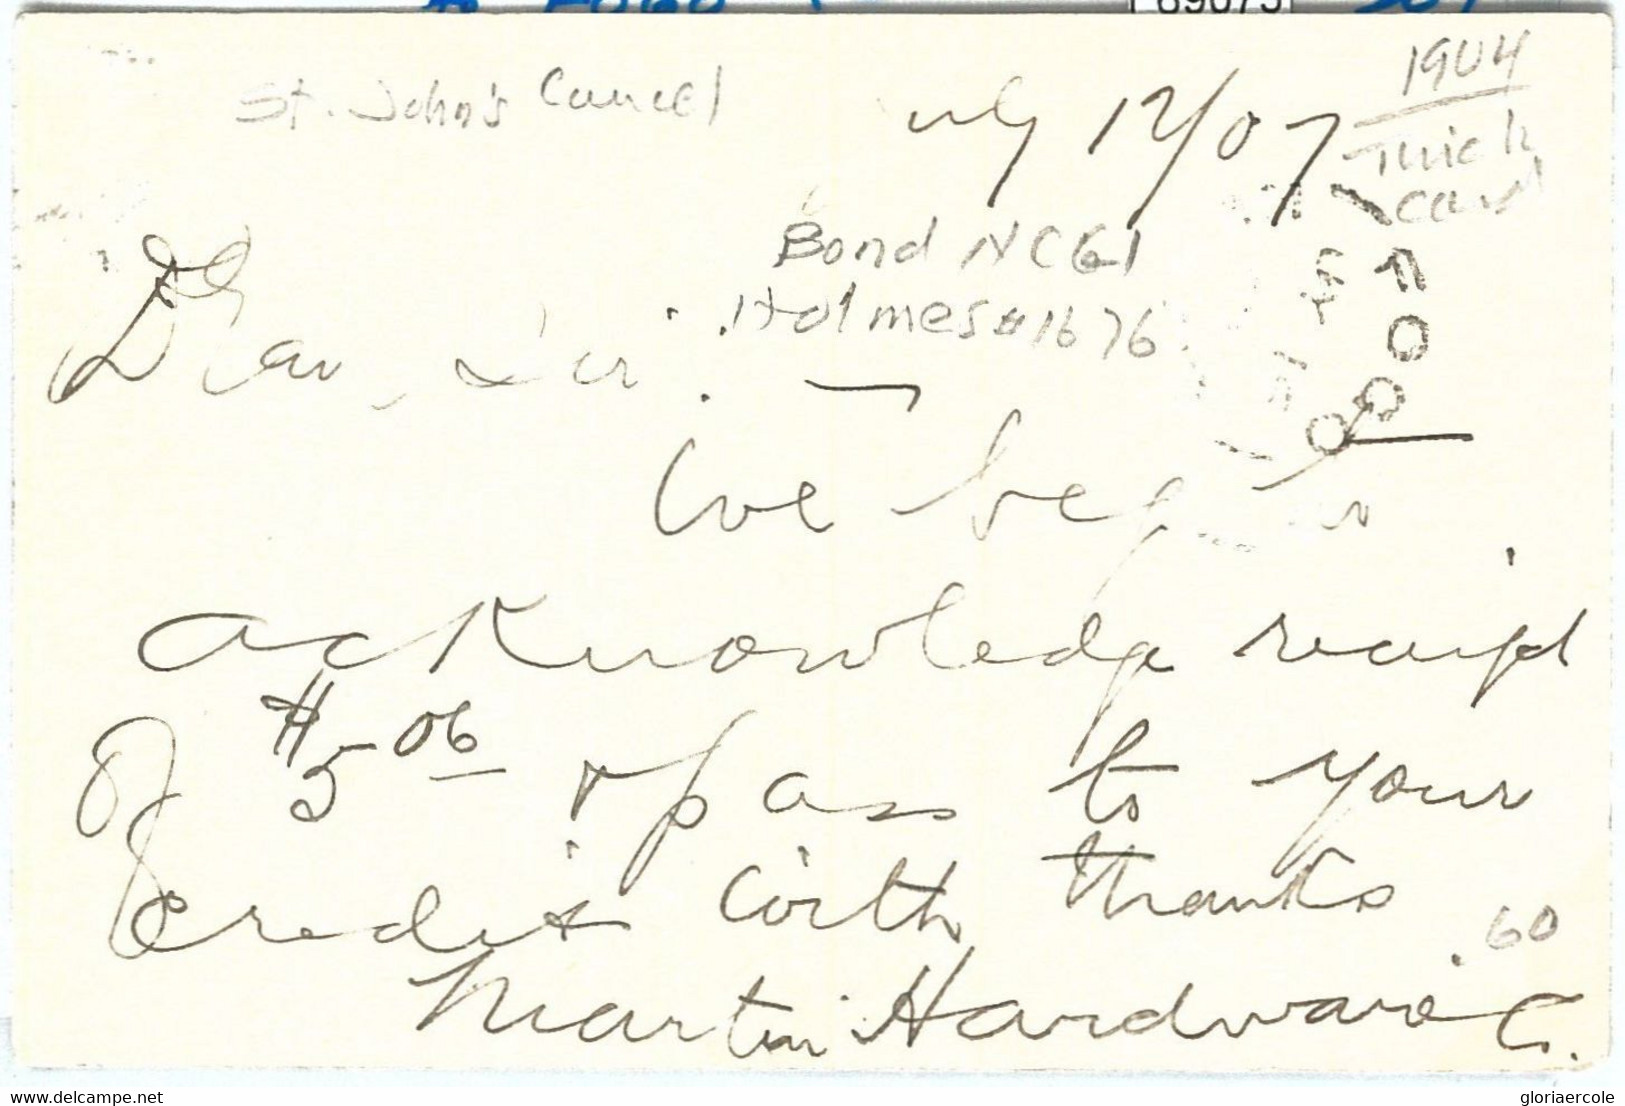 St. John's Cancel
July 12/07
1904
Thick
card
Bond NCG1
Holmes #1676
Dear Sir.
We beg to
acknowledge receipt
Of $5.06 & pass to your
Credit with thanks
.60
Martin Hardware Co.
FOGO
69075
delcampe.net
gloriaercole